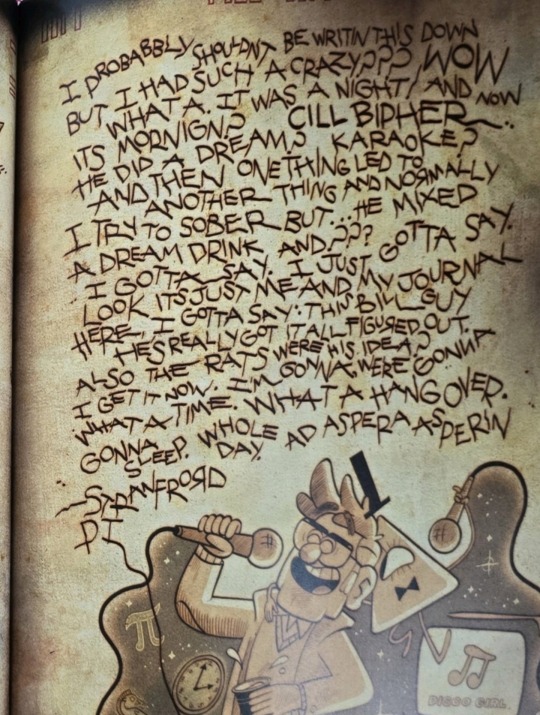 I PROBABBLY SHOULDNT BE WRITIN THIS DOWN
BUT I HAD SUCH A CRAZY??? WOW
WHAT A. IT WAS A NIGHT! AND NOW
ITS MORNVIGN? CILL BIPHER
HE DID A DREAM? KARAOKE?
AND THEN ONE THING LED TO
ANOTHER THING AND NORMALLY
I TRY TO SOBER BUT... HE MIXED
A DREAM DRINK AND.???
I GOTTA SAY. I JUST GOTTA SAY.
LOOK ITS JUST ME AND MY JOURNAL
HERE. I GOTTA SAY: THIS BILL GUY
HES REALLY GOT IT ALL FIGURED OUT.
ALSO THE RATS WERE HIS IDEA?
I GET IT NOW. I'M GONNA. WERE GONNA
WHAT A TIME. WHAT A HANGOVER.
GONNA SLEEP. WHOLE DAY. AD ASPERA ASPERIN
SARANFRORD
PI
π
DISCO GIRL